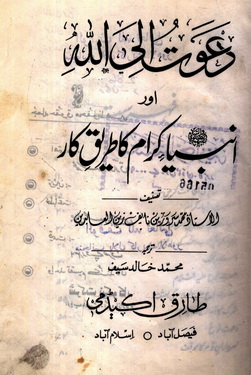 دعوت الی اللہ
اور
انبیاء کرام کا طریق کار
n5166
تصنیف
الاستاذ محمد سرور بن نایف زین العابدین
ترجمہ
محمد خالد سیف
طارق اکیڈمی
فیصل آباد ○ اسلام آباد